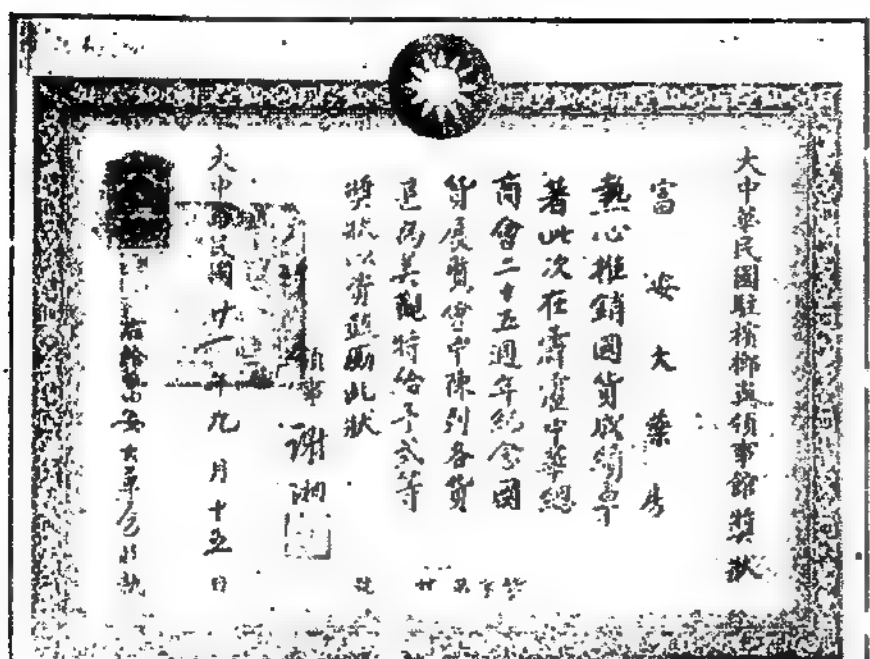 大中華民國駐檳榔嶼領事館獎狀
富安大藥房
熱心推銷國貨成績卓
著此次在霹靂中華總
商會二十五週年紀念國
貨展覽會中陳列各貨
美觀特給予弍等
獎狀以資鼓勵此狀
領事 謝湘
大中華民國廿一年九月十五日
安大藥房
廿 號